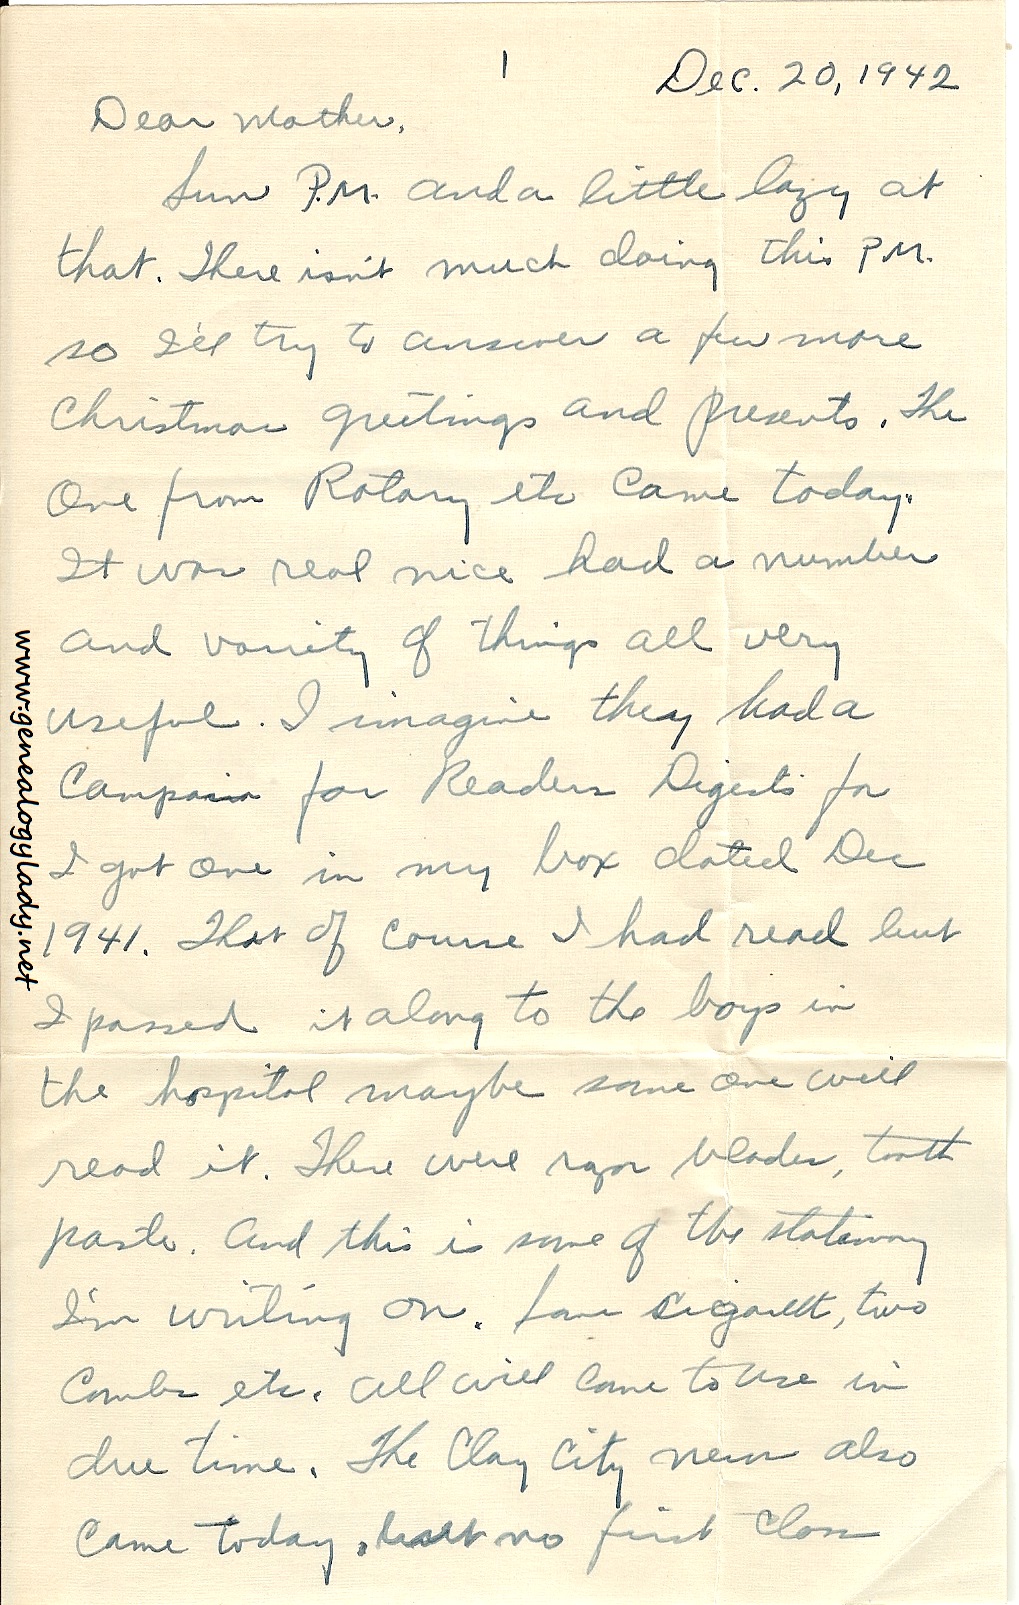 1
Dec. 20, 1942
Dear Mother,
Sun P.M. and a little lazy at
that. There isn't much doing this P.M.
so I'll try to answer a few more
Christmas greetings and presents. The
One from Rotary etc came today.
It was real nice had a number
and variety of things all very
useful. I imagine they had a
Campain for Readers Digests for
I got one in my box dated Dec
1941. That of course I had read but
I passed it along to the boys in
the hospital maybe some one will
read it. There were razor blades, tooth
paste. And this is some of the stationary
I'm writing on. Some cigarett, two
Combs etc. All will come to use in
due time. The Clay City news also
came today, but no first class
www.genealogylady.net